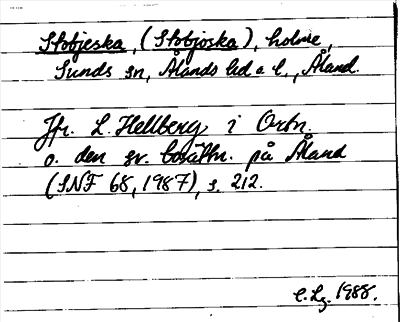 Stobjeska, (Stobjoska), holme,
Sunds sn, Ålands hd o. l., Åland.
Jfr. L. Hellberg i Ortn.
o. den sv. bosättn. på Åland
(SNF 68, 1987), s. 212.
1988.